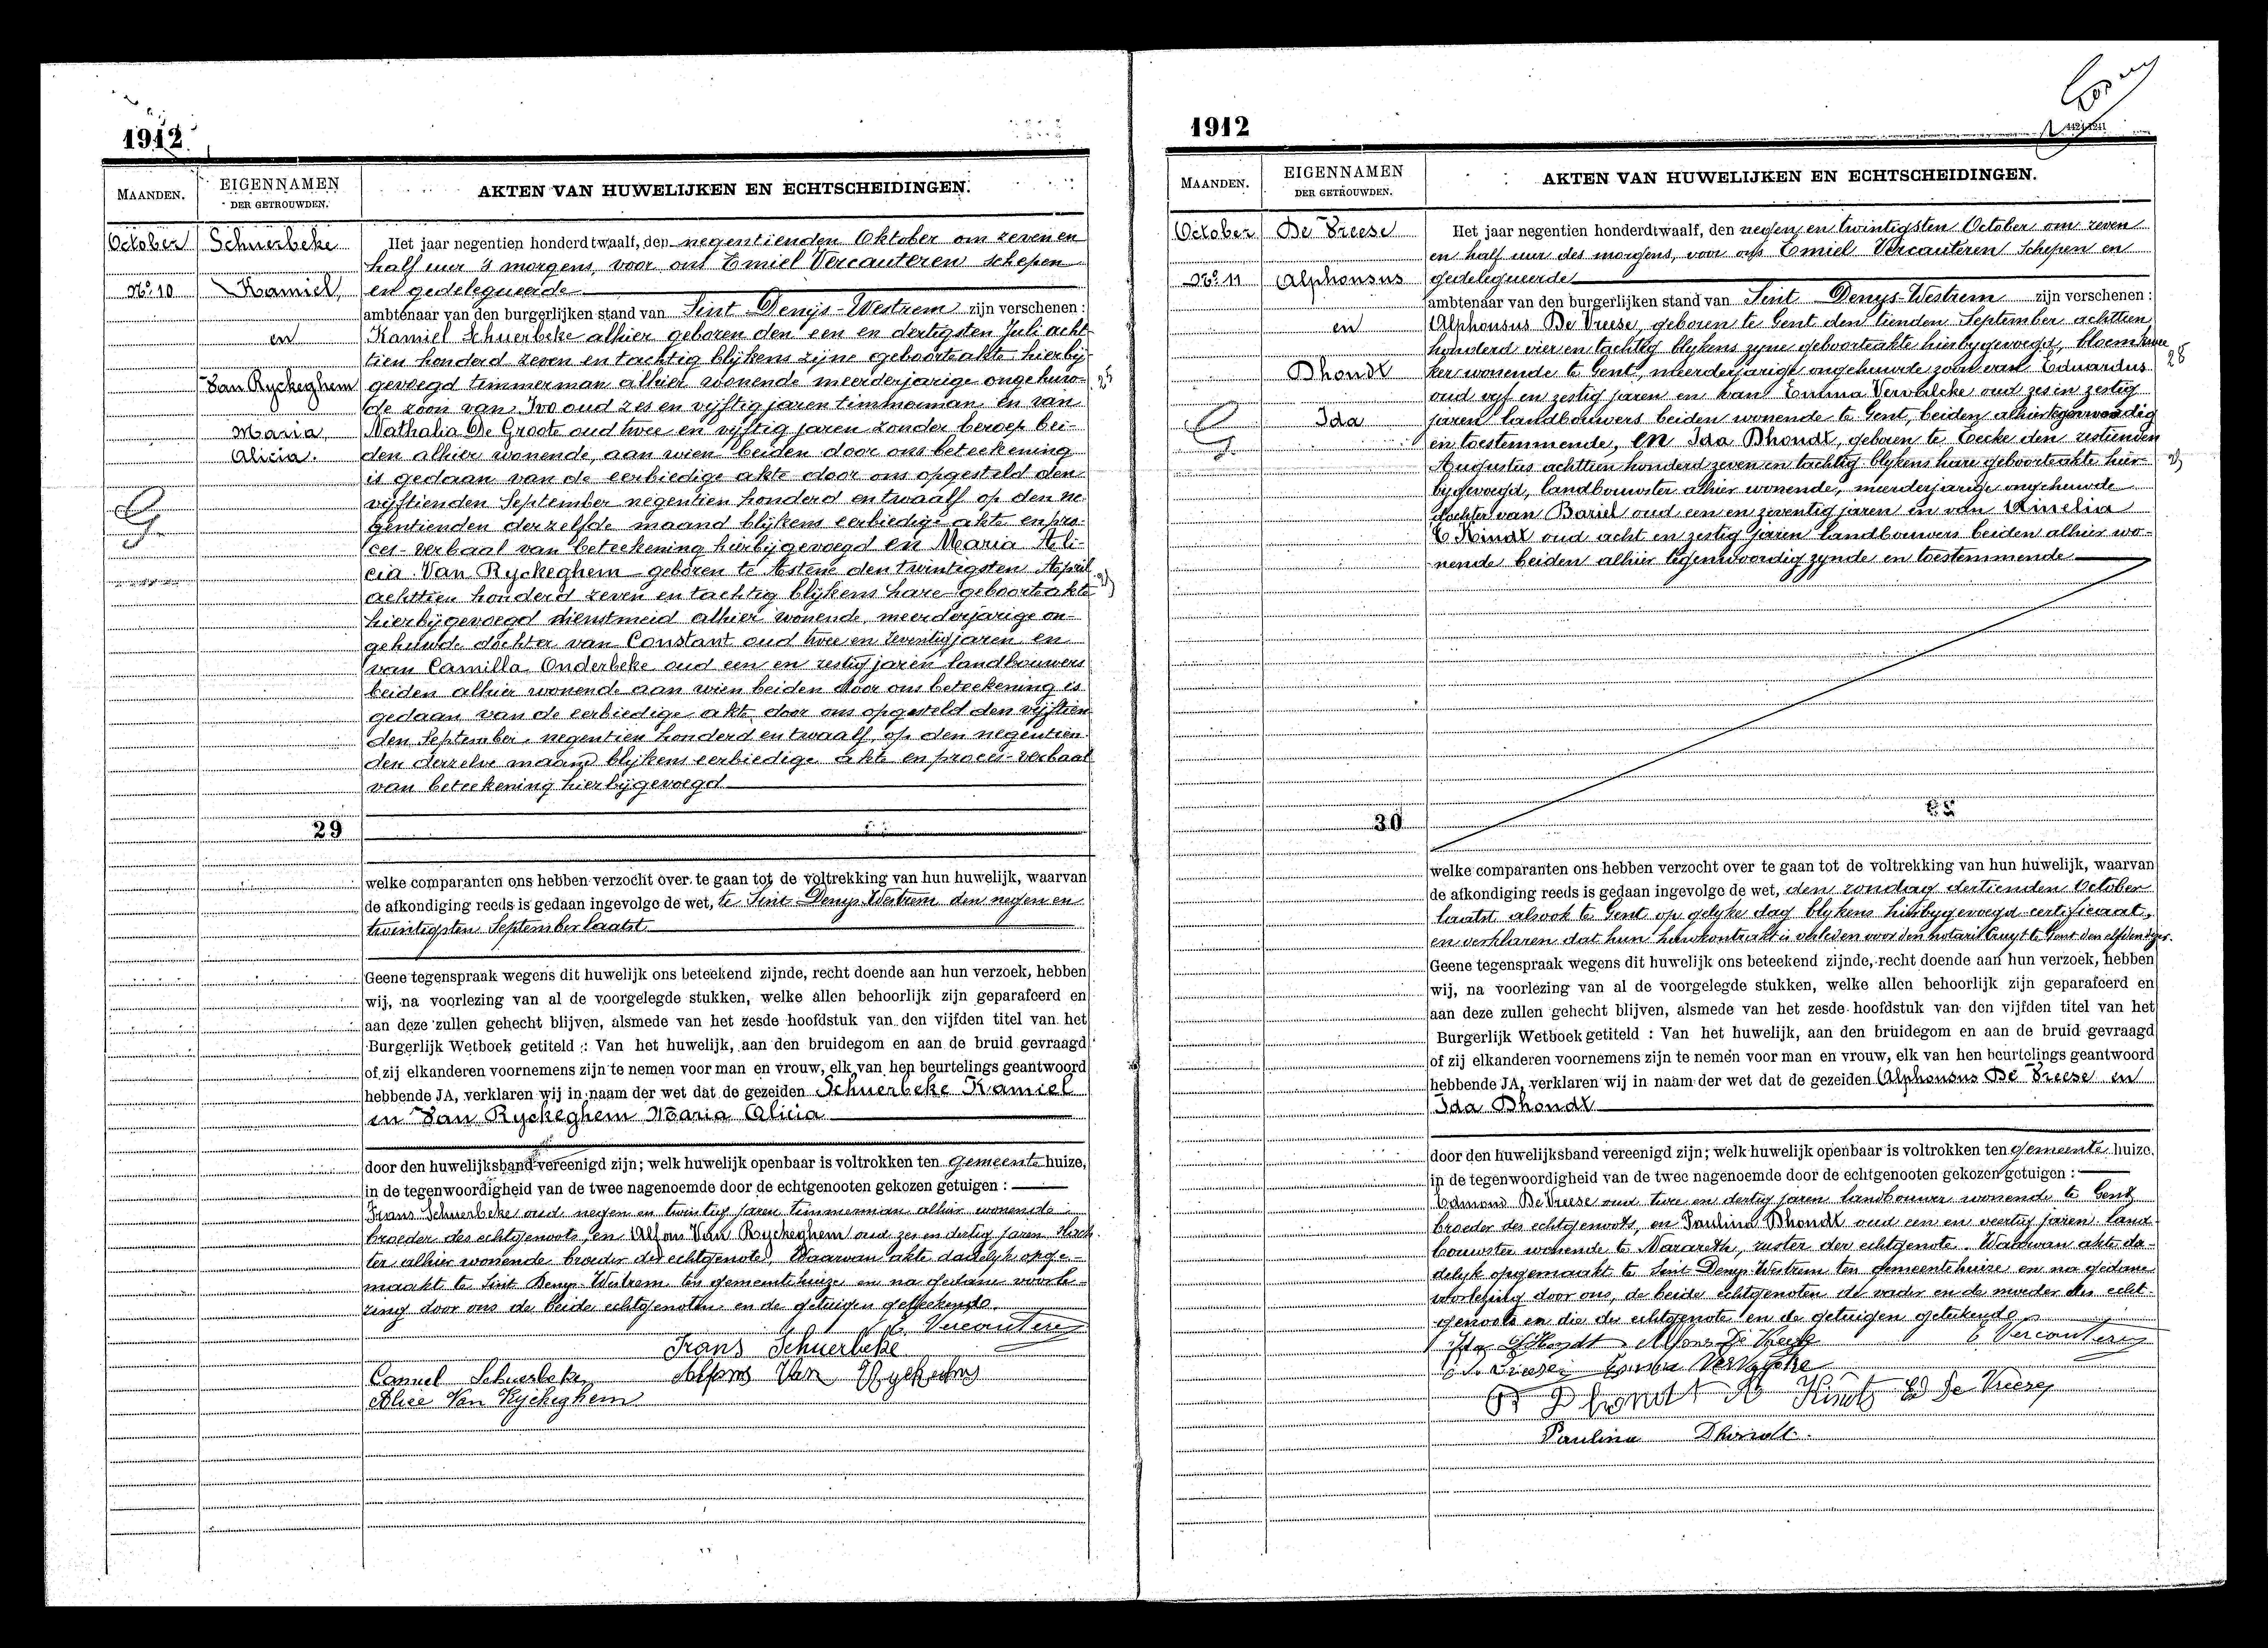 1912
MAANDEN.
EIGENNAMEN
DER GETROUWDEN.
AKTEN VAN HUWELIJKEN EN ECHTSCHEIDINGEN.
October
No. 10
Schuerbeke
Kamiel,
en
Van Ryckeghem
Maria
Alicia.
Het jaar negentien honderd twaalf, den negentienden Oktober om zeven en
half uur 's morgens, voor ons Emiel Vercauteren schepen
en gedelegueerde
ambtenaar van den burgerlijken stand van Sint Denijs-Westrem zijn verschenen:
Kamiel Schuerbeke alhier geboren den een en dertigsten Juli acht-
tien honderd zeven en tachtig blijkens zijne geboorteakte hierbij-
gevoegd timmerman alhier wonende meerderjarige ongehuw-
de zoon van Ivo oud zes en vijftig jaren timmerman en van
Nathalia De Groote oud twee en vijftig jaren zonder beroep bei-
den alhier wonende, aan wien beiden door ons beteekening
is gedaan van de eerbiedige akte door ons opgesteld den
vijftienden September negentien honderd en twaalf op den ne-
gentienden derzelfde maand blijkens eerbiedige akte en pro-
ces-verbaal van beteekening hierbijgevoegd en Maria Ali-
cia Van Ryckeghem geboren te Astene den twintigsten April
achttien honderd zeven en tachtig blijkens hare geboorteakte
hierbijgevoegd dienstmeid alhier wonende, meerderjarige on-
gehuwde dochter van Constant oud twee en zeventig jaren en
van Camilla Onderbeke oud een en zestig jaren landbouwers
beiden alhier wonende aan wien beiden door ons beteekening is
gedaan van de eerbiedige akte door ons opgesteld den vijftien
den September, negentien honderd en twaalf, op den negentien
den derzelve maand blijkens eerbiedige akte en proces-verbaal
van beteekening hierbijgevoegd
29
welke comparanten ons hebben verzocht over te gaan tot de voltrekking van hun huwelijk, waarvan
de afkondiging reeds is gedaan ingevolge de wet, te Sint Denys Westrem den negen en
twintigsten September laatst
Geene tegenspraak wegens dit huwelijk ons beteekend zijnde, recht doende aan hun verzoek, hebben
wij, na voorlezing van al de voorgelegde stukken, welke allen behoorlijk zijn geparafeerd en
aan deze zullen gehecht blijven, alsmede van het zesde hoofdstuk van den vijfden titel van het
Burgerlijk Wetboek getiteld : Van het huwelijk, aan den bruidegom en aan de bruid gevraagd
of zij elkanderen voornemens zijn te nemen voor man en vrouw, elk van hen beurtelings geantwoord
hebbende JA, verklaren wij in naam der wet dat de gezeiden Schuerbeke Kamiel
en Van Ryckeghem Maria Alicia
door den huwelijksband vereenigd zijn; welk huwelijk openbaar is voltrokken ten gemeente huize,
in de tegenwoordigheid van de twee nagenoemde door de echtgenooten gekozen getuigen :
Frans Schuerbeke oud negen en twintig jaren timmerman alhier wonende
broeder des echtgenoots, en Alfons Van Ryckeghem oud zes en dertig jaren
ter alhier wonende broeder der echtgenote, Waarvan akte dadelijk opge-
maakt te Sint Denys Westrem ten gemeentehuize en na gedane voorle-
zing door ons de beide echtgenoten en de getuigen geteekende.
E. Vercauteren
Frans Schuerbeke
Camiel Schuerbeke
Alfons Van Ryckeghem
Alice Van Ryckeghem
1912
MAANDEN.
EIGENNAMEN
DER GETROUWDEN.
AKTEN VAN HUWELIJKEN EN ECHTSCHEIDINGEN.
October
No. 11
De Vreese
Alphonsus
en
Dhondt
Ida
Het jaar negentien honderdtwaalf, den negen en twintigsten October om zeven
en half uur des morgens, voor ons Emiel Vercauteren schepen en
gedelegueerde
ambtenaar van den burgerlijken stand van Sint Denys-Westrem zijn verschenen:
Alphonsus De Vreese, geboren te Gent den tienden September achttien
honderd vier en tachtig blykens zyne geboorteakte hierbygevoegd, bloemkwe
ker wonende te Gent, meerderjarige ongehuwde zoon van Eduardus
oud vyf en zestig jaren en van Emma Vervalcke oud zes en zestig
jaren landbouwers beiden wonende te Gent, beiden alhier tegenwoordig
en toestemmende, en Ida Dhondt, geboren te Eecke den zestienden
Augustus achttien honderd zeven en tachtig blykens hare geboorteakte hier-
bygevoegd, landbouwster alhier wonende, meerderjarige ongehuwde
dochter van Bariel oud een en zeventig jaren en van Amelia
T'Kindt oud acht en zestig jaren landbouwers beiden alhier wo-
nende beiden alhier tegenwoordig zynde en toestemmende
30
welke comparanten ons hebben verzocht over te gaan tot de voltrekking van hun huwelijk, waarvan
de afkondiging reeds is gedaan ingevolge de wet, den zondag dertienden October
laatst alsook te Gent op gelyke dag blykens hierbygevoegd certificaat,
en verklaren dat hun huwkontrakt is verleden voor den notaris te Gent den elfden dezer.
Geene tegenspraak wegens dit huwelijk ons beteekend zijnde, recht doende aan hun verzoek, hebben
wij, na voorlezing van al de voorgelegde stukken, welke allen behoorlijk zijn geparafeerd en
aan deze zullen gehecht blijven, alsmede van het zesde hoofdstuk van den vijfden titel van het
Burgerlijk Wetboek getiteld : Van het huwelijk, aan den bruidegom en aan de bruid gevraagd
of zij elkanderen voornemens zijn te nemen voor man en vrouw, elk van hen beurtelings geantwoord
hebbende JA, verklaren wij in naam der wet dat de gezeiden Alphonsus De Vreese en
Ida Dhondt
door den huwelijksband vereenigd zijn; welk huwelijk openbaar is voltrokken ten gemeente huize,
in de tegenwoordigheid van de twee nagenoemde door de echtgenooten gekozen getuigen :
Edmond De Vreese oud twee en dertig jaren landbouwer wonende te Gent
broeder des echtgenoots, en Paulina Dhondt oud een en veertig jaren land
bouwster wonende te Nazareth, zuster der echtgenote. Waarvan akte da-
delyk opgemaakt te Sint Denys-Westrem ten gemeentehuize en na gedane
voorlezing door ons, de beide echtgenoten de vader en de moeder des echt-
genoots en die der echtgenote en de getuigen geteekende
Ida Dhondt Alfons De Vreese
E Vercauteren
Emma Vervalcke
B Dhondt A Kindt Ed De Vreese
Paulina Dhondt.